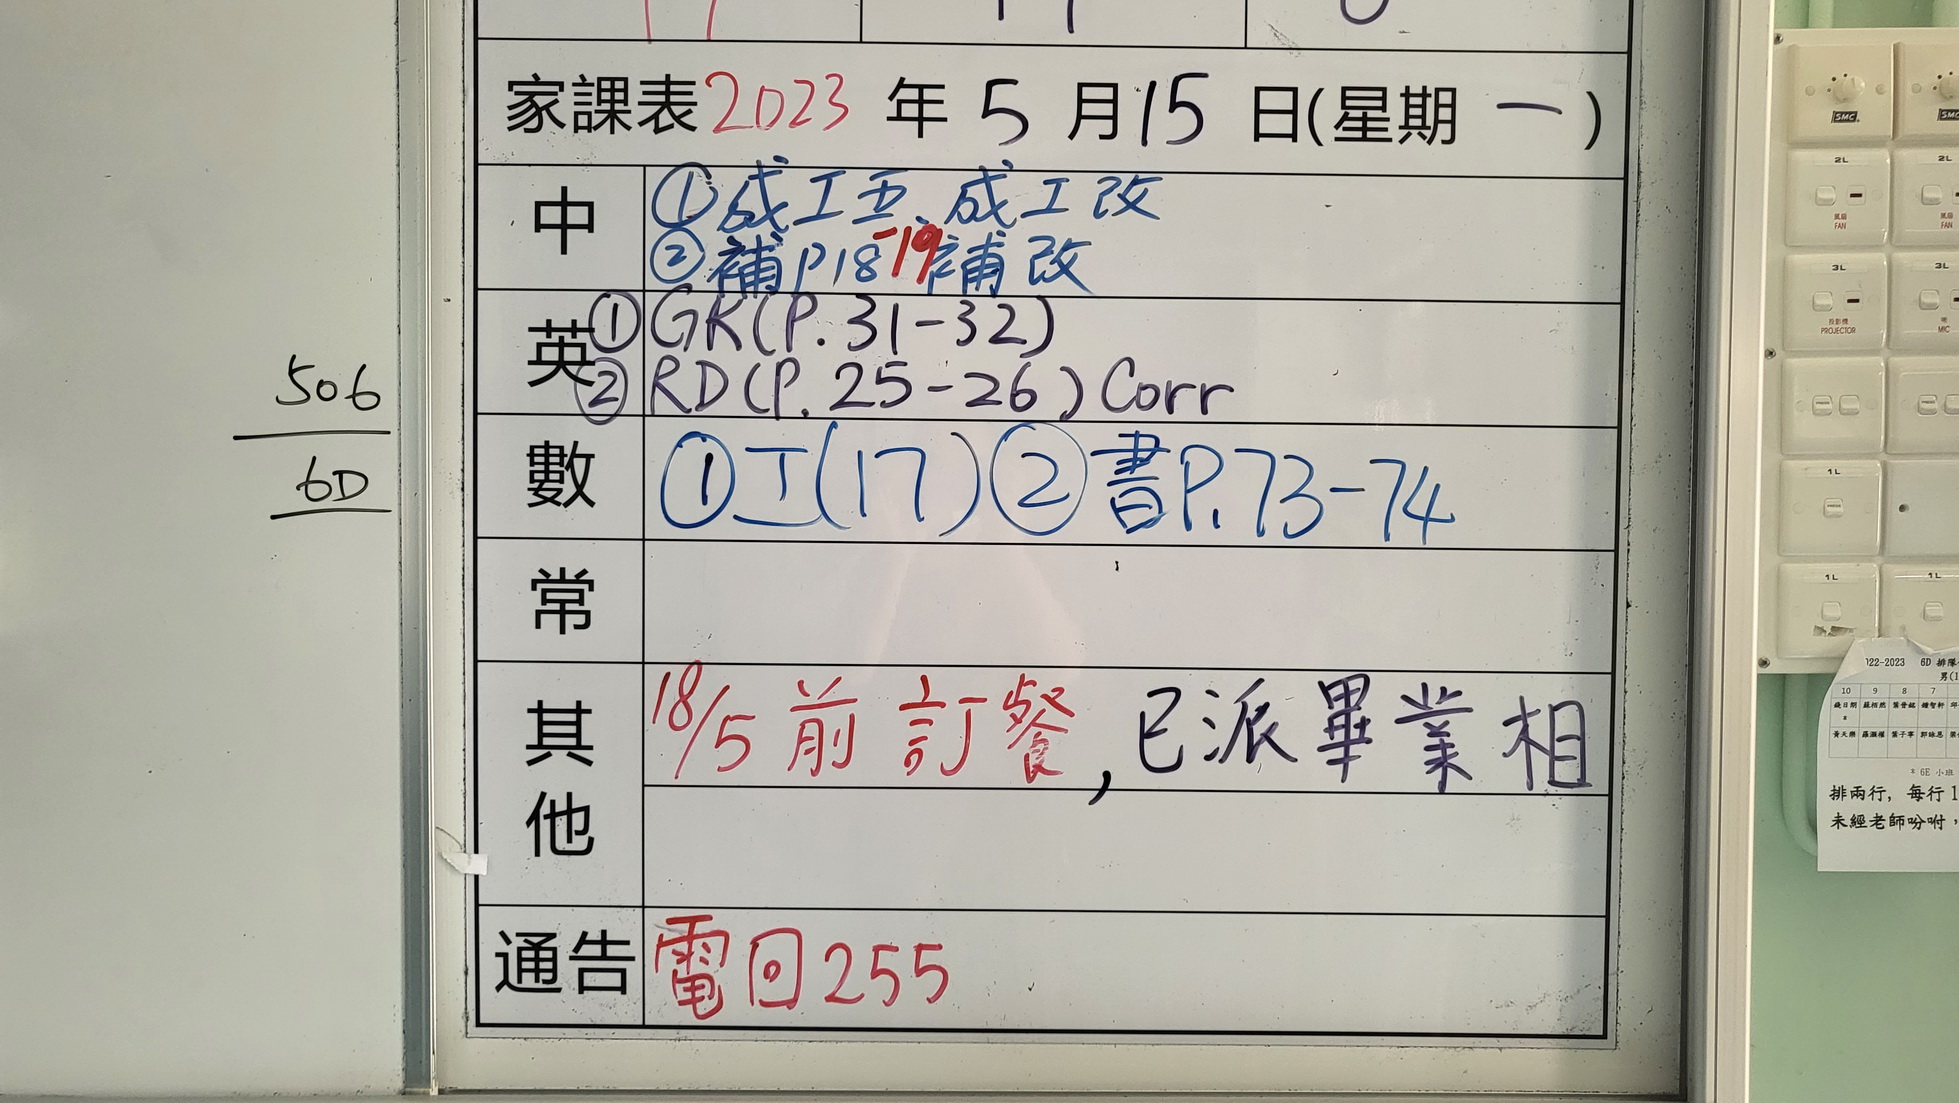 家課表2023年5月15日(星期一)
中
①成工五、成工改
②補P18-19補改
英
①GK(P.31-32)
②RD(P.25-26)Corr
數
①工(17)②書P.73-74
常
其他
18/5前訂餐,已派畢業相
通告
電回255
506
6D
SMC
SMC
2L
2L
風扇
FAN
風扇
FAN
3L
3L
投影機
PROJECTOR
MIC
1L
1L
1L
022-2023 6D 排隊
男(1
10 9 8 7
* 6E 小班
排兩行，每行1
未經老師吩咐，